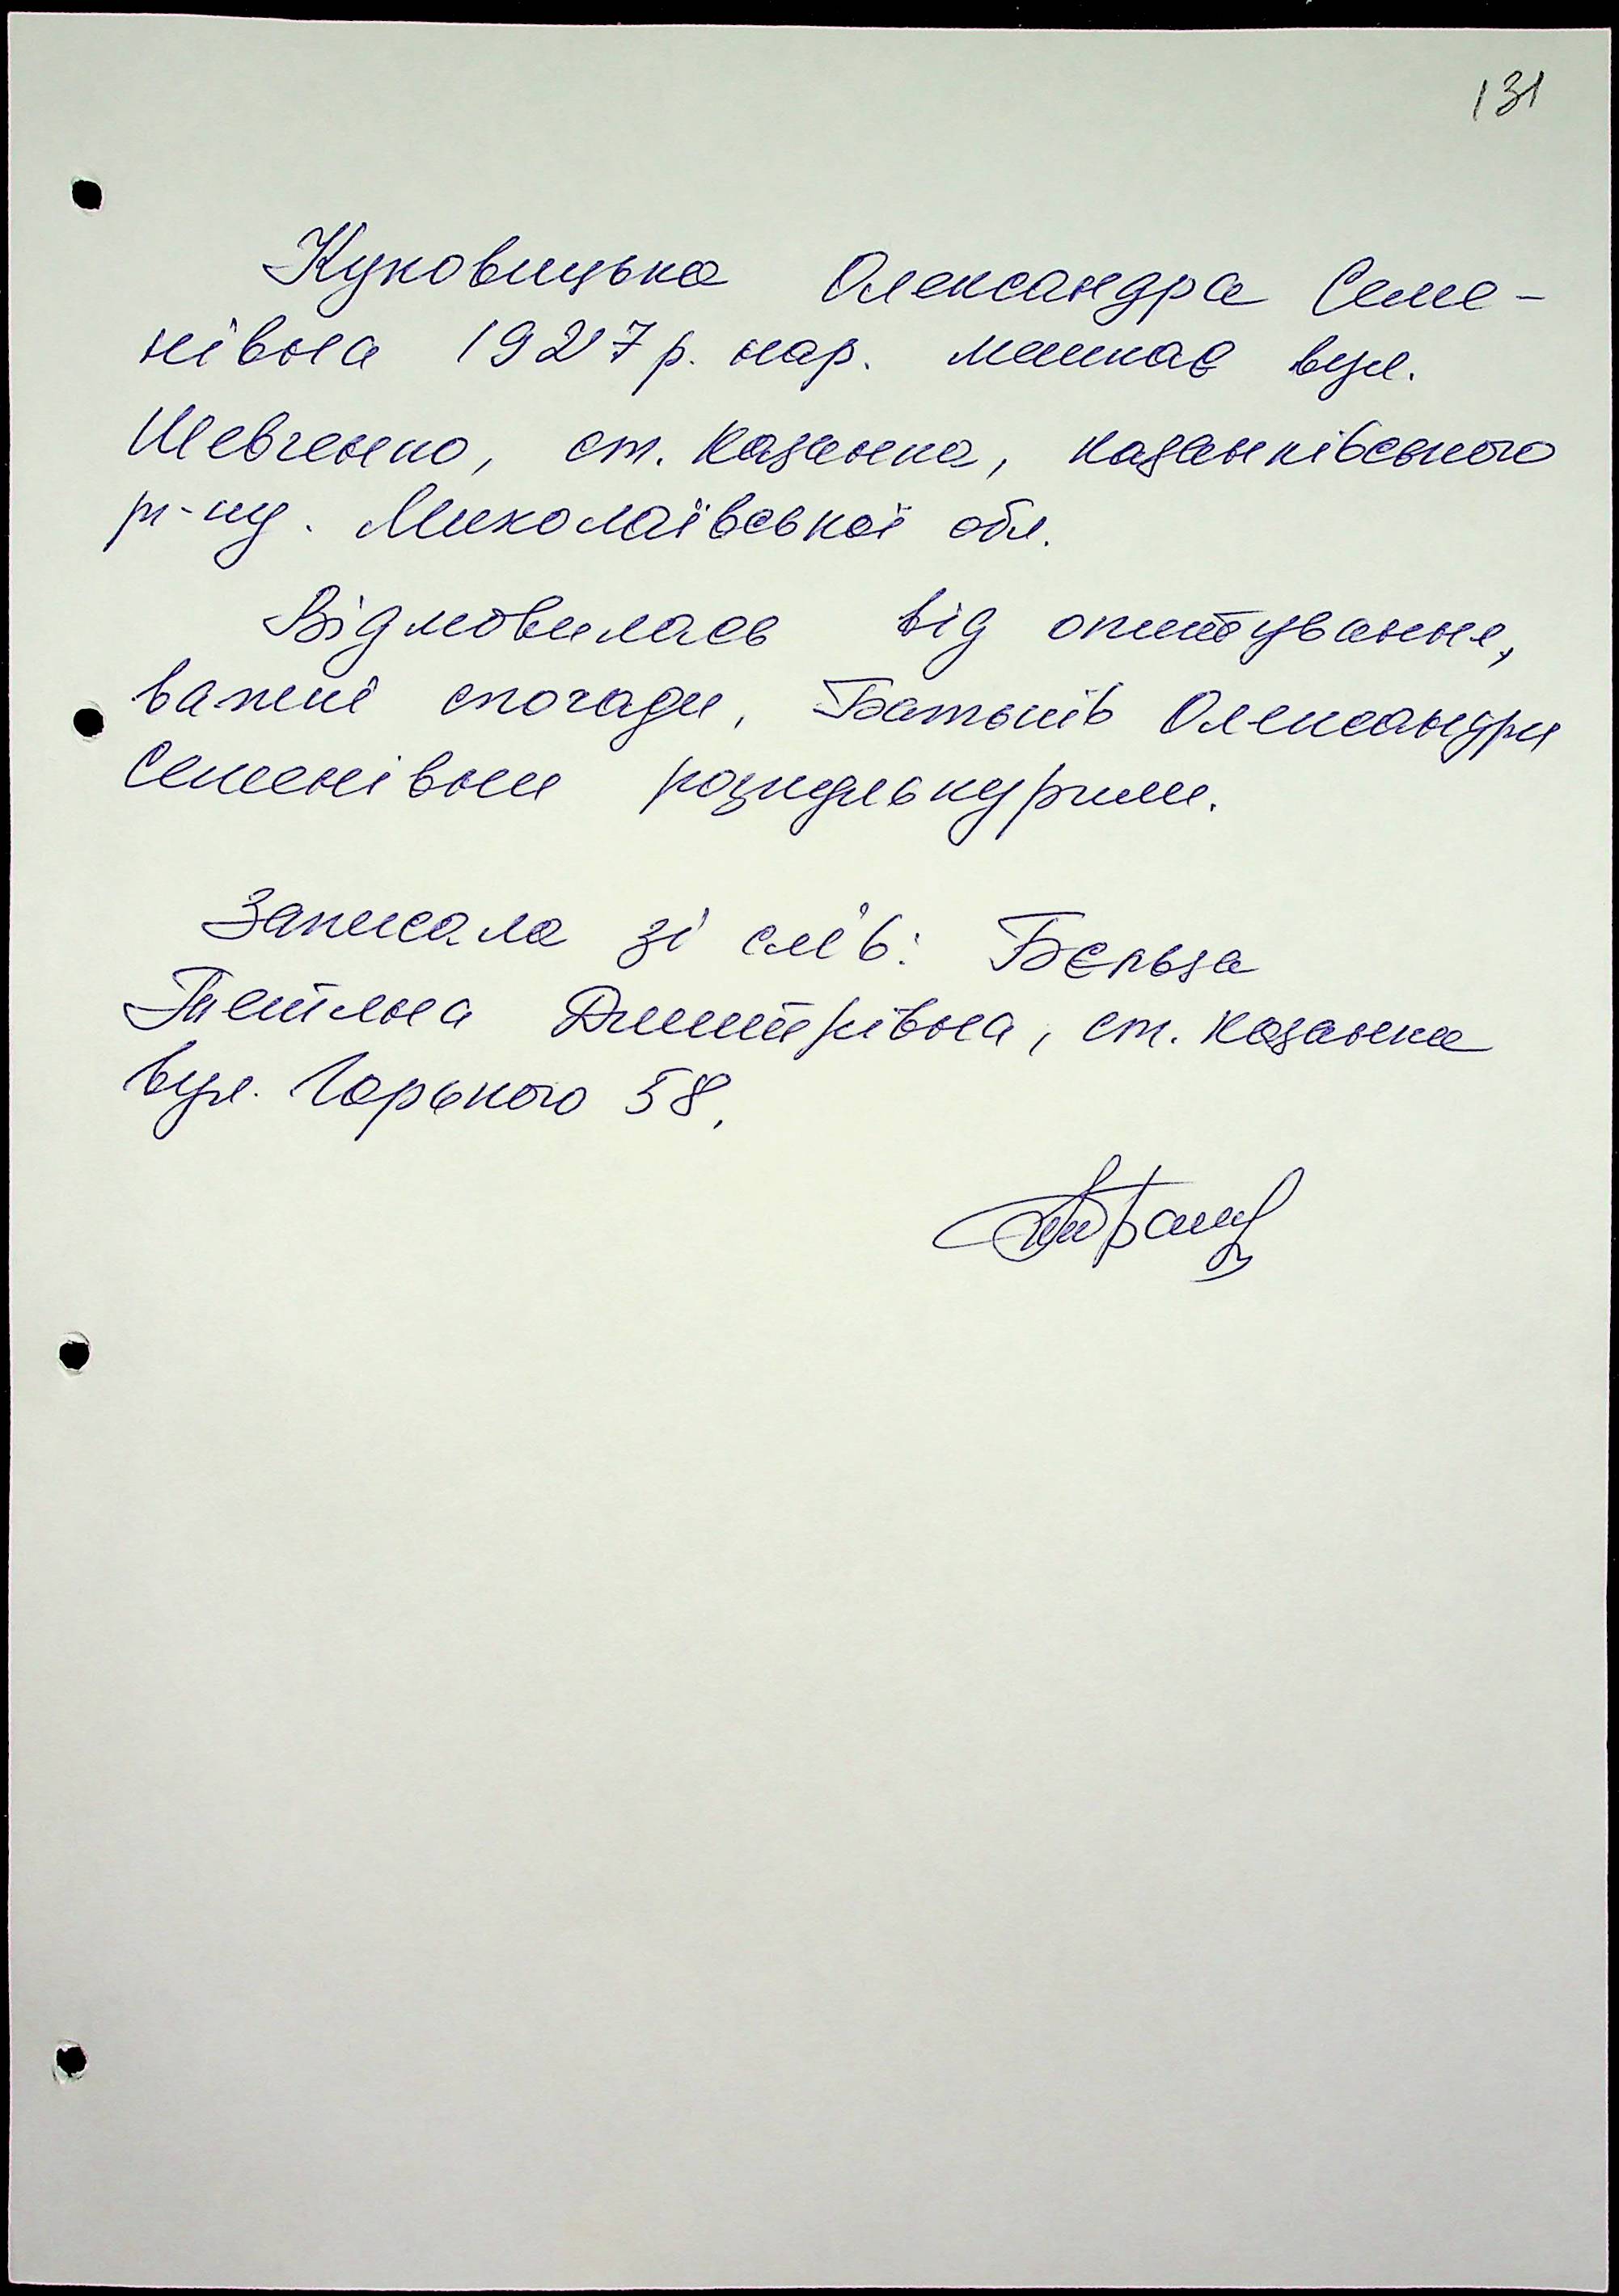 131
Куковицька Олександра Семе-
нівна 1927 р. нар. мешкає вул.
Шевченко, ст. Казанка, Казанківського
р-ну. Миколаївської обл.
Відмовилась від опитування,
важкі спогади, Батьків Олександри
Семенівни розкуркурили.
Записала зі слів: Бєльза
Тетяна Дмитрівна, ст. Казанка
вул. Горького 58.